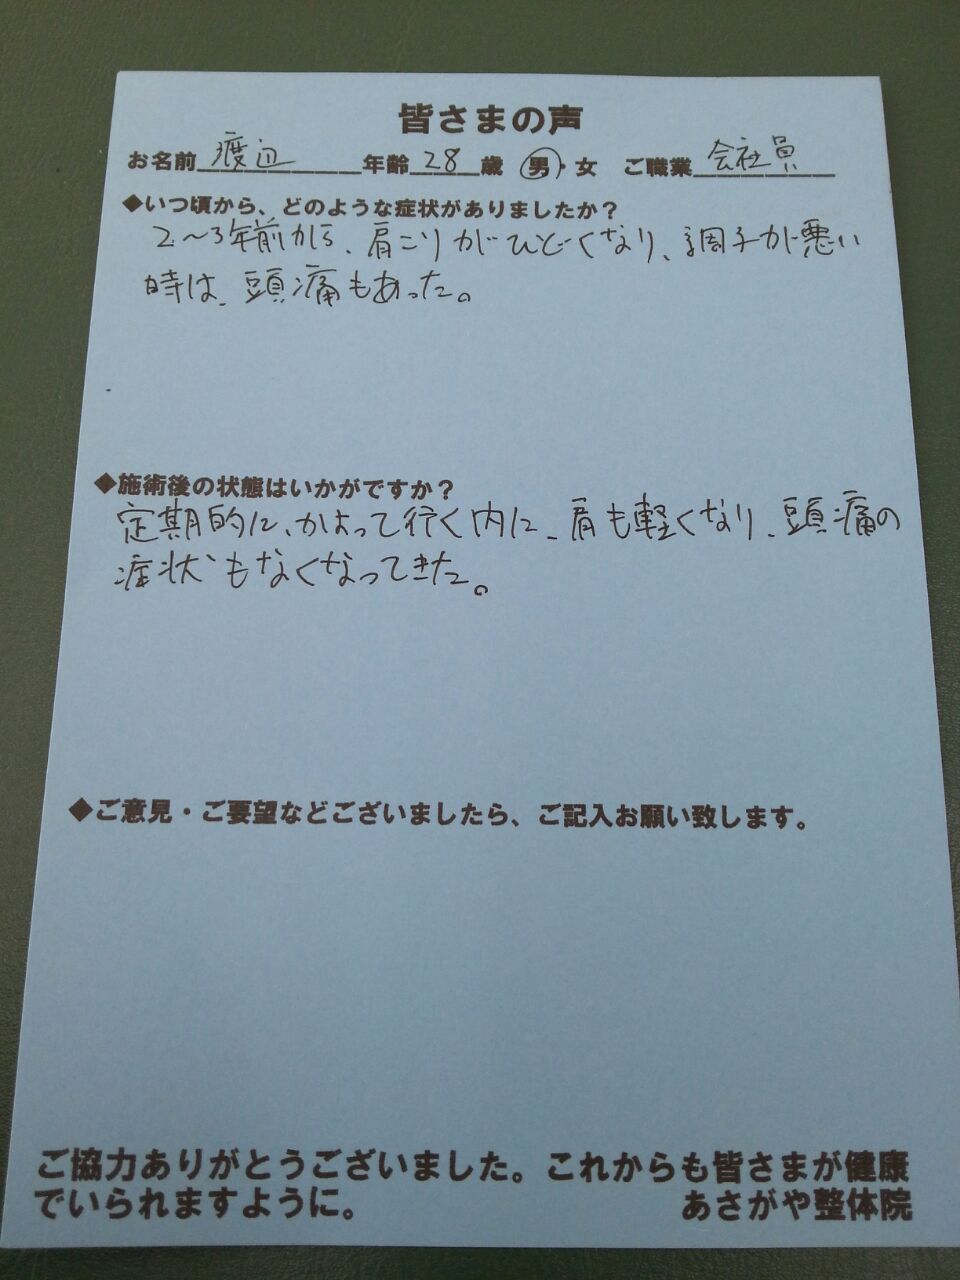 皆さまの声
お名前 渡辺 年齢 28 歳 男・女 ご職業 会社員
◆いつ頃から、どのような症状がありましたか？
2～3年前から、肩こりがひどくなり、調子が悪い
時は、頭痛もあった。
◆施術後の状態はいかがですか？
定期的に、かよって行く内に、肩も軽くなり、頭痛の
症状もなくなってきた。
◆ご意見・ご要望などございましたら、ご記入お願い致します。
ご協力ありがとうございました。これからも皆さまが健康
でいられますように。 あさがや整体院